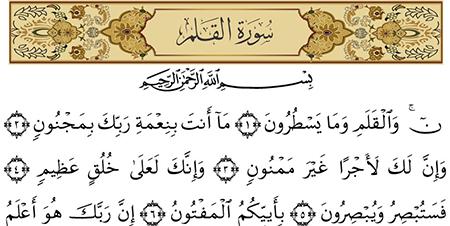 سُورَةُ القَلَمِ
بِسْمِ اللَّهِ الرَّحْمَٰنِ الرَّحِيمِ
نٓ ۚ وَالْقَلَمِ وَمَا يَسْطُرُونَ ﴿١﴾ مَا أَنتَ بِنِعْمَةِ رَبِّكَ بِمَجْنُونٍ ﴿٢﴾
وَإِنَّ لَكَ لَأَجْرًا غَيْرَ مَمْنُونٍ ﴿٣﴾ وَإِنَّكَ لَعَلَىٰ خُلُقٍ عَظِيمٍ ﴿٤﴾
فَسَتُبْصِرُ وَيُبْصِرُونَ ﴿٥﴾ بِأَييِّكُمُ الْمَفْتُونُ ﴿٦﴾ إِنَّ رَبَّكَ هُوَ أَعْلَمُ